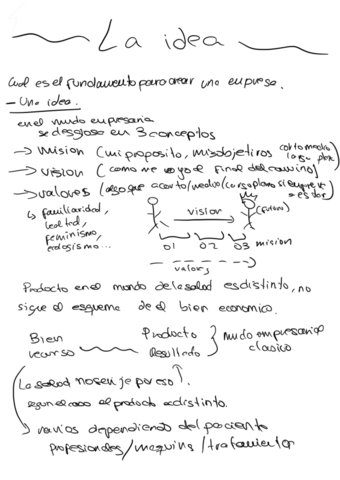 La idea
Cual es el fundamento para crear una empresa.
- Una idea.
en el mundo empresaria
se desglosa en 3 conceptos
-> Mision (mi proposito, mis objetivos corto medio
largo plazo
-> vision (como me voy al final del camino)
-> valores (algo que a corto/medio/largo plano
↳ familiaridad,
lealtad,
feminismo,
ecologismo...
vision
(futuro)
01 02 03 mision
valores
Producto en el mundo de la salud es distinto, no
sigue el esquema de el bien economico.
Bien
recurso
Producto
Resultado
mudo empresarial
clasico
La salud no se rije por eso
segun el caso el producto es distinto.
-> varios dependiendo del paciente
profesionales/maquina/tratamientor